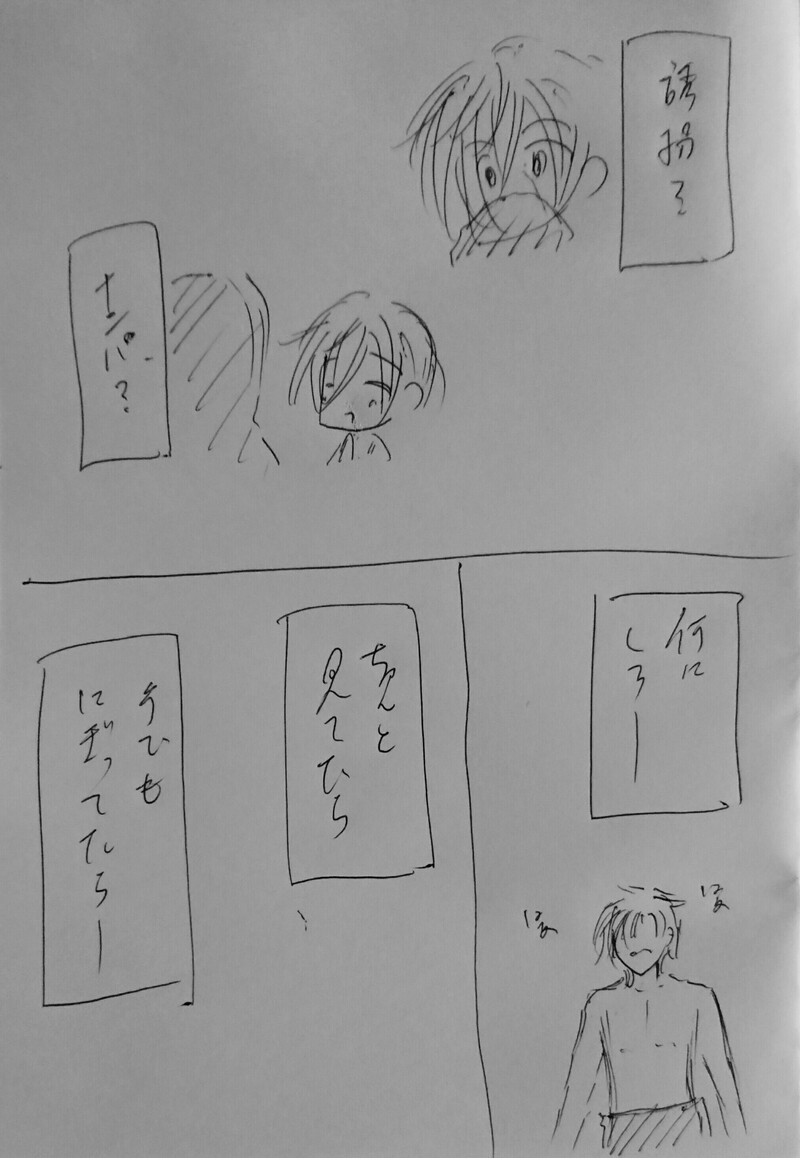 誘拐?
ナンパ?
何に
しろー
ちゃんと
見てたら
手でも
にぎってたらー
はぁ
はぁ